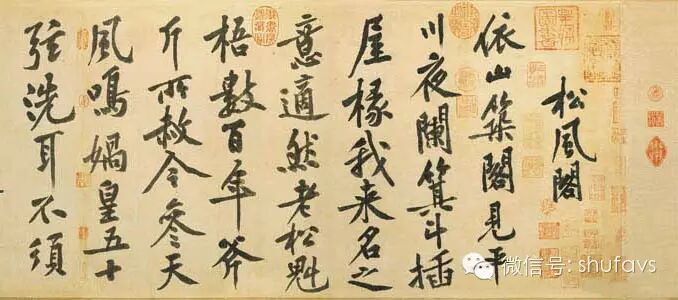 松風閣
依山築閣見平
川夜闌箕斗插
屋椽我来名之
意適然老松魁
梧數百年斧
斤所赦今參天
風鳴媧皇五十
弦洗耳不須
微信号: shufavs